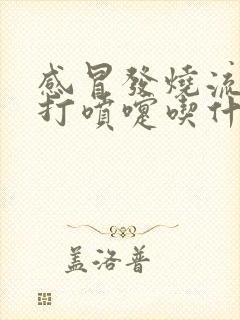 感冒發燒流
打噴嚏喫什
盖洛普